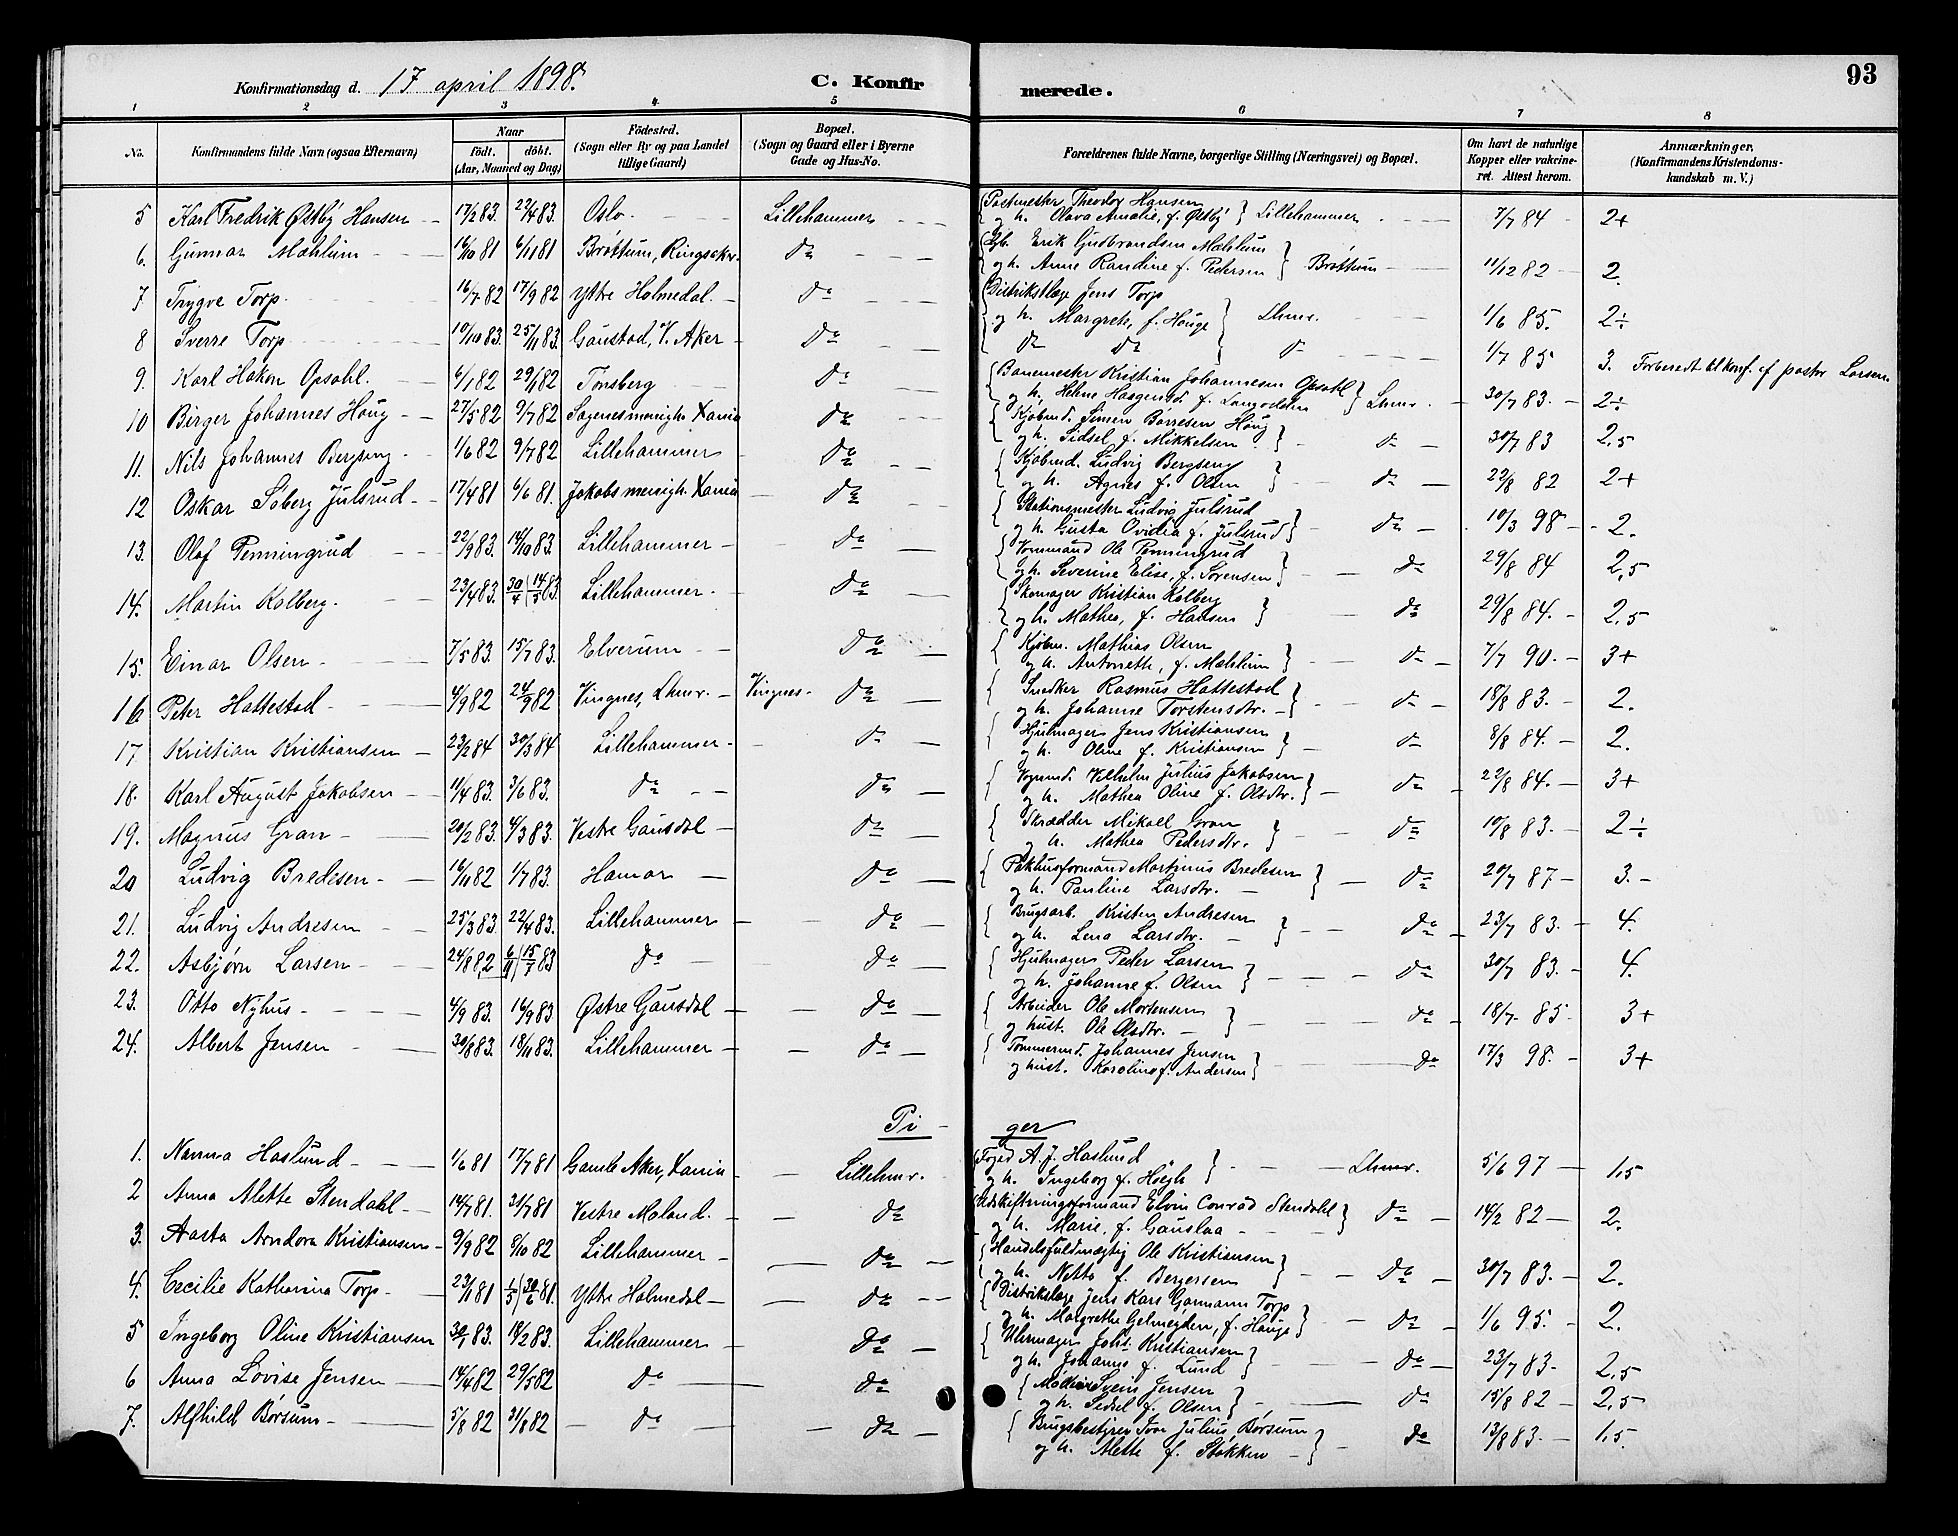 93
Konfirmationsdag d. 17 april 1898. C. Konfirmerede.
1 2 3 4. 5 6 7 8
No. Konfirmandens fulde Navn (ogsaa Efternavn) Naar födt. döbt. (Aar, Maaned og Dag) Födested. (Sogn eller By og paa Landet tillige Gaard) Bopæl. (Sogn og Gaard eller i Byerne Gade og Hus-No. Forældrenes fulde Navne, borgerlige Stilling (Næringsvei) og Bopæl. Om havt de naturlige Kopper eller vakcineret. Attest herom. Anmærkninger. (Konfirmandens Kristendomskundskab m. V.)
5 Karl Fredrik Østby Hansen 17/2 83. 22/4 83. Oslo. Lillehammer Postmester Theodor Hansen og h. Olava Amalie, f. Østby Lillehammer 7/7 84 2+
6. Gunnar Mæhlum 16/10 81 6/11 81 Brøttum, Ringsaker do Erik Gudbrandsen Mæhlum og h. Anne Randine f. Pedersen Brøttum 11/12 82 2.
7 Trygve Torp 16/7 82 17/9 82 Yttre Holmedal do Distriktslæge Jens Torp og h. Margrete, f. Houge Lhmr. 1/6 85. 2÷
8 Sverre Torp 10/10 83. 25/11 83. Gaustad, V. Aker do do do do 1/7 85 3. Forberedt til konf. af pastor Larsen
9. Karl Hakon Opsahl. 6/1 82 29/1 82 Tønsberg do Banemester Kristian Johannesen Opsahl og h. Helene Haagensd. f. Langodden Lhmr. 30/7 83. 2÷
10 Birger Johannes Houg 27/5 82 9/7 82 Sagenesmenigh. Xania do Kjøbmd. Simen Børresen Houg og h. Sidsel f. Mikkelsen do 30/7 83 2,5
11. Nils Johannes Bergseng 1/6 82 9/7 82 Lillehammer do Kjøbmd. Ludvig Bergseng og h. Agnes f. Olsen do 22/8 82 2+
12 Oskar Soberg Julsrud 17/4 81 6/6 81. Jakobs menigh. Xania do Stationsmester Ludvig Julsrud og h. Gusta Ovidia f. Julsrud do 10/3 98 2.
13. Olaf Penningrud 22/9 83. 14/10 83. Lillehammer do Vognmand Ole Penningrud og h. Severine Elise, f. Sørensen do 29/8 84 2,5
14. Martin Kolberg. 23/4 83. 30/4 (14/5 83. Lillehammer. do Skomager Kristian Kolberg og h. Mathea, f. Hansen do 29/8 84. 2,5
15. Einar Olsen 7/5 83. 15/7 83. Elverum do Kjøbm. Mathias Olsen og h. Antonette, f. Mæhlum do 7/7 90. 3+
16 Peter Hattestad 4/9 82 24/9 82 Vingnes, Lhmr. Vingnes. do Snedker Rasmus Hattestad og h. Johanne Torstensdtr. do 18/8 83. 2.
17 Kristian Kristiansen 23/2 84 30/3 84 Lillehammer. do Hjulmager Jens Kristiansen og h. Oline f. Kristiansen do 8/8 84. 2.
18. Karl August Jakobsen 11/4 83. 3/6 83. do do Vognmd. Vilhelm Julius Jakobsen og h. Mathea Oline f. Olsdtr. do 22/8 84. 3+
19. Magnus Gran 20/2 83. 4/3 83. Vestre Gausdal do Skrædder Mikael Gran og h. Mathea Pedersdtr. do 10/8 83. 2÷
20 Ludvig Bredesen 16/11 82 1/7 83. Hamar do Pakhusformand Martinus Bredesen og h. Pauline Larsdtr. do 20/7 87. 3.
21. Ludvig Andresen 25/3 83. 22/4 83. Lillehammer do Brugsarb. Kristen Andresen og h. Lena Larsdtr. do 23/7 83. 4.
22. Asbjørn Larsen 24/8 82 6/11) 15/7 83 do do Hjulmager Peder Larsen og h. Johanne f. Olsen do 30/7 83. 4.
23. Otto Nyhus 4/9 83. 16/9 83 Østre Gausdal do Arbeider Ole Mortensen og hust. Ole Olsdtr. do 18/7. 85. 3+
24. Albert Jensen 30/8 83. 18/11 83. Lillehammer do Tømmermd. Johannes Jensen og hust. Karoline f. Andersen do 17/3 98. 3+
Piger
1. Nanna Haslund 1/6 81 17/7 81 Gamle Aker, Xania Lillehmr. Foged A. J. Haslund og h. Ingeborg f. Høegh Lhmr. 5/6 97 1,5
2 Anna Alette Stendahl 14/7 81. 31/7 81 Vestre Moland. do Udskiftningsformand Elvin Conrad Stendahl og h. Marie, f. Gauslaa do 14/2 82 2.
3. Aasta Arndora Kristiansen 9/9 82 8/10 82 Lillehammer do Handelsfuldmægtig Ole Kristiansen og h. Netto f. Bergersen do 30/7 83. 2.
4. Cecilie Katharina Torp 23/1 81 1/5) 30/6 81. Yttre Holmedal do Distriktslæge Jens Kars Garmann Torp og h. Margrethe Gelmeyden, f. Houge do 1/6 95. 2.
5 Ingeborg Oline Kristiansen 30/1 83. 18/2 83. Lillehammer do Uhrmager Johs. Kristiansen og h. Johanne f. Lund do 23/7 83. 2,5
6 Anna Lovise Jensen 14/4 82 29/5 82 do do Møller Svein Jensen og h. Sidsel f. Olsen do 15/8 82 2,5
7. Alfhild Børsum 5/8 82 31/8 82 do do Brugsbestyrer Ivar Julius Børsum og h. Alette f. Stokken do 13/8 83. 1,5.